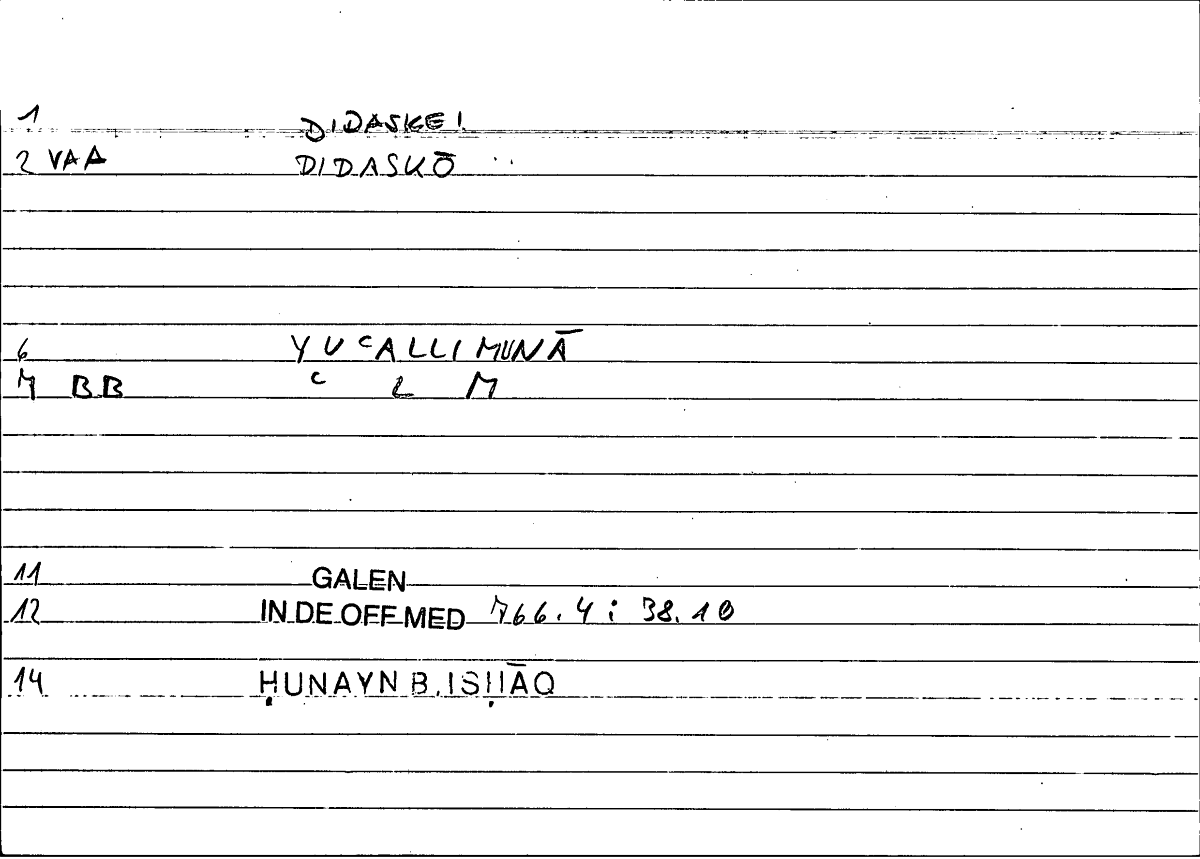 1 DIDASKEI
2 VAA DIDASKŌ
6 YUᶜALLIMUNĀ
7 BB ᶜ L M
11 GALEN
12 IN DE OFF MED 766.4 : 38.10
14 ḤUNAYN B. ISḤĀQ